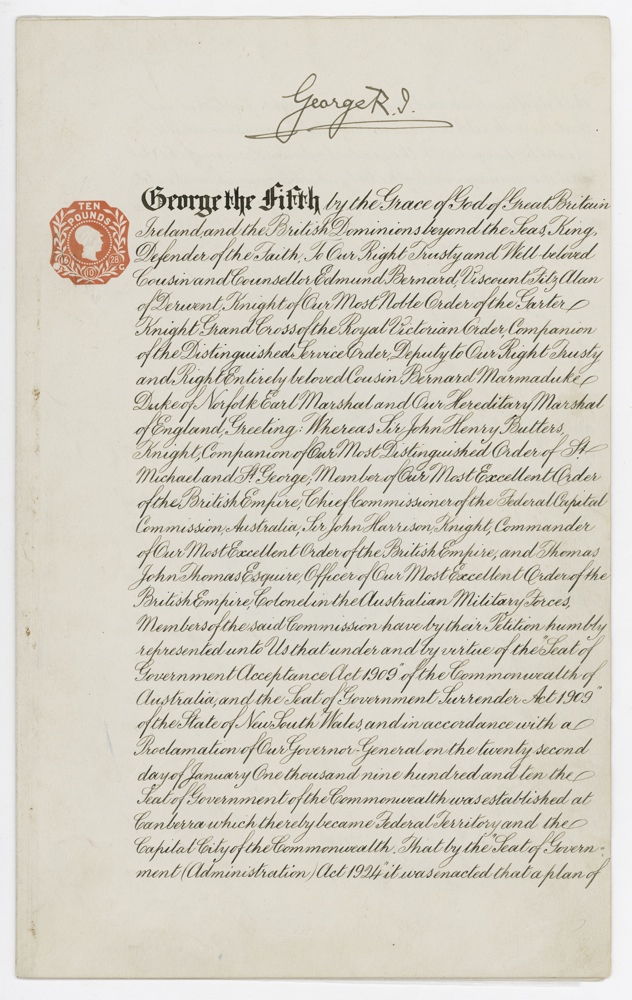 George R. I.
TEN
POUNDS
16 28
10
George the Fifth by the Grace of God of Great Britain
Ireland and the British Dominions beyond the Seas, King,
Defender of the Faith, To Our Right Trusty and Well-beloved
Cousin and Counsellor Edmund Bernard, Viscount FitzAlan
of Derwent, Knight of Our Most Noble Order of the Garter
Knight Grand Cross of the Royal Victorian Order, Companion
of the Distinguished Service Order, Deputy to Our Right Trusty
and Right Entirely beloved Cousin Bernard Marmaduke
Duke of Norfolk Earl Marshal and Our Hereditary Marshal
of England, Greeting: Whereas Sir John Henry Butters,
Knight, Companion of Our Most Distinguished Order of St.
Michael and St. George, Member of Our Most Excellent Order
of the British Empire, Chief Commissioner of the Federal Capital
Commission, Australia, Sir John Harrison, Knight, Commander
of Our Most Excellent Order of the British Empire, and Thomas
John Thomas Esquire, Officer of Our Most Excellent Order of the
British Empire, Colonel in the Australian Military Forces,
Members of the said Commission have by their Petition humbly
represented unto Us that under and by virtue of the "Seat of
Government Acceptance Act 1909" of the Commonwealth of
Australia, and the Seat of Government Surrender Act 1909"
of the State of New South Wales, and in accordance with a
Proclamation of Our Governor-General on the twenty second
day of January One thousand nine hundred and ten the
Seat of Government of the Commonwealth was established at
Canberra which thereby became Federal Territory and the
Capital City of the Commonwealth. That by the "Seat of Govern-
ment (Administration) Act 1924" it was enacted that a plan of